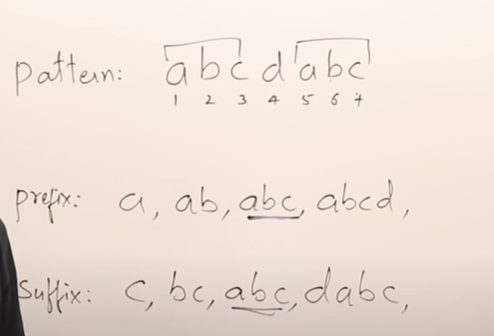 pattern: abcdabc
1 2 3 4 5 6 7
prefix: a, ab, abc, abcd,
Suffix: c, bc, abc, dabc,